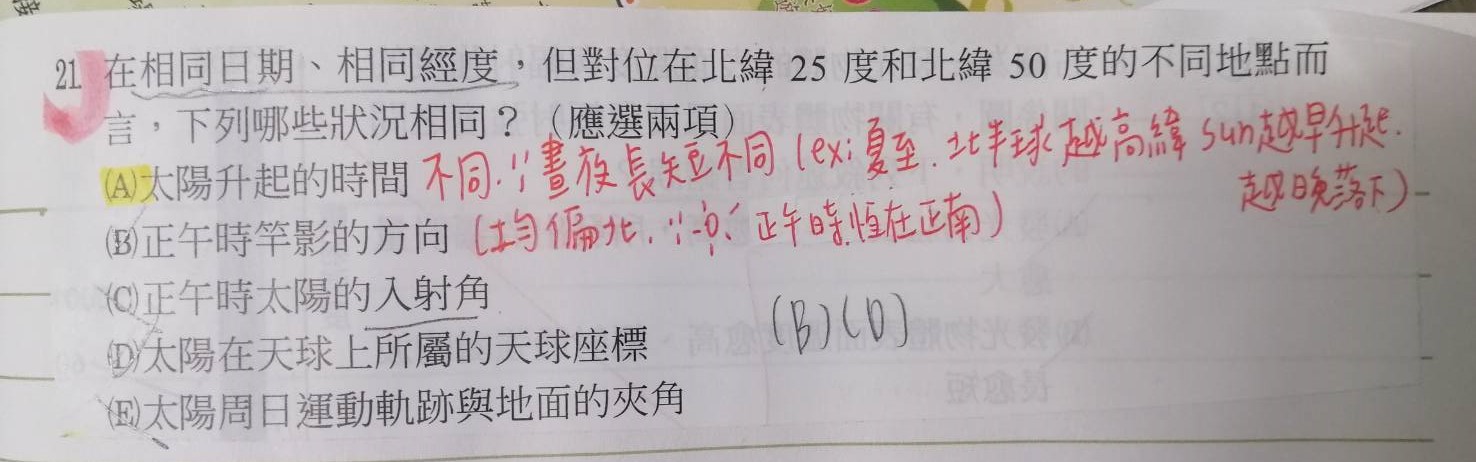 21 在相同日期、相同經度，但對位在北緯 25 度和北緯 50 度的不同地點而
言，下列哪些狀況相同？（應選兩項）
(A)太陽升起的時間 不同.∵晝夜長短不同(ex:夏至.北半球越高緯sun越早升起.
越晚落下)
(B)正午時竿影的方向 (均偏北.∵ 正午時恆在正南)
(C)正午時太陽的入射角
(B)(D)
(D)太陽在天球上所屬的天球座標
(E)太陽周日運動軌跡與地面的夾角